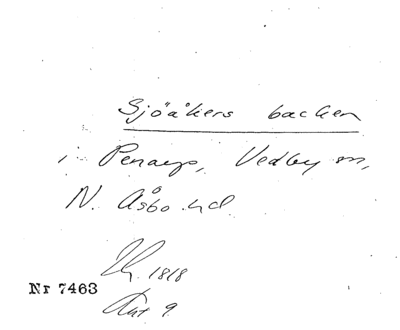 Sjöåkers backen
i Penarp, Vedby sn,
N. Åsbo hd
1818
Nr 7463
Akt 9.